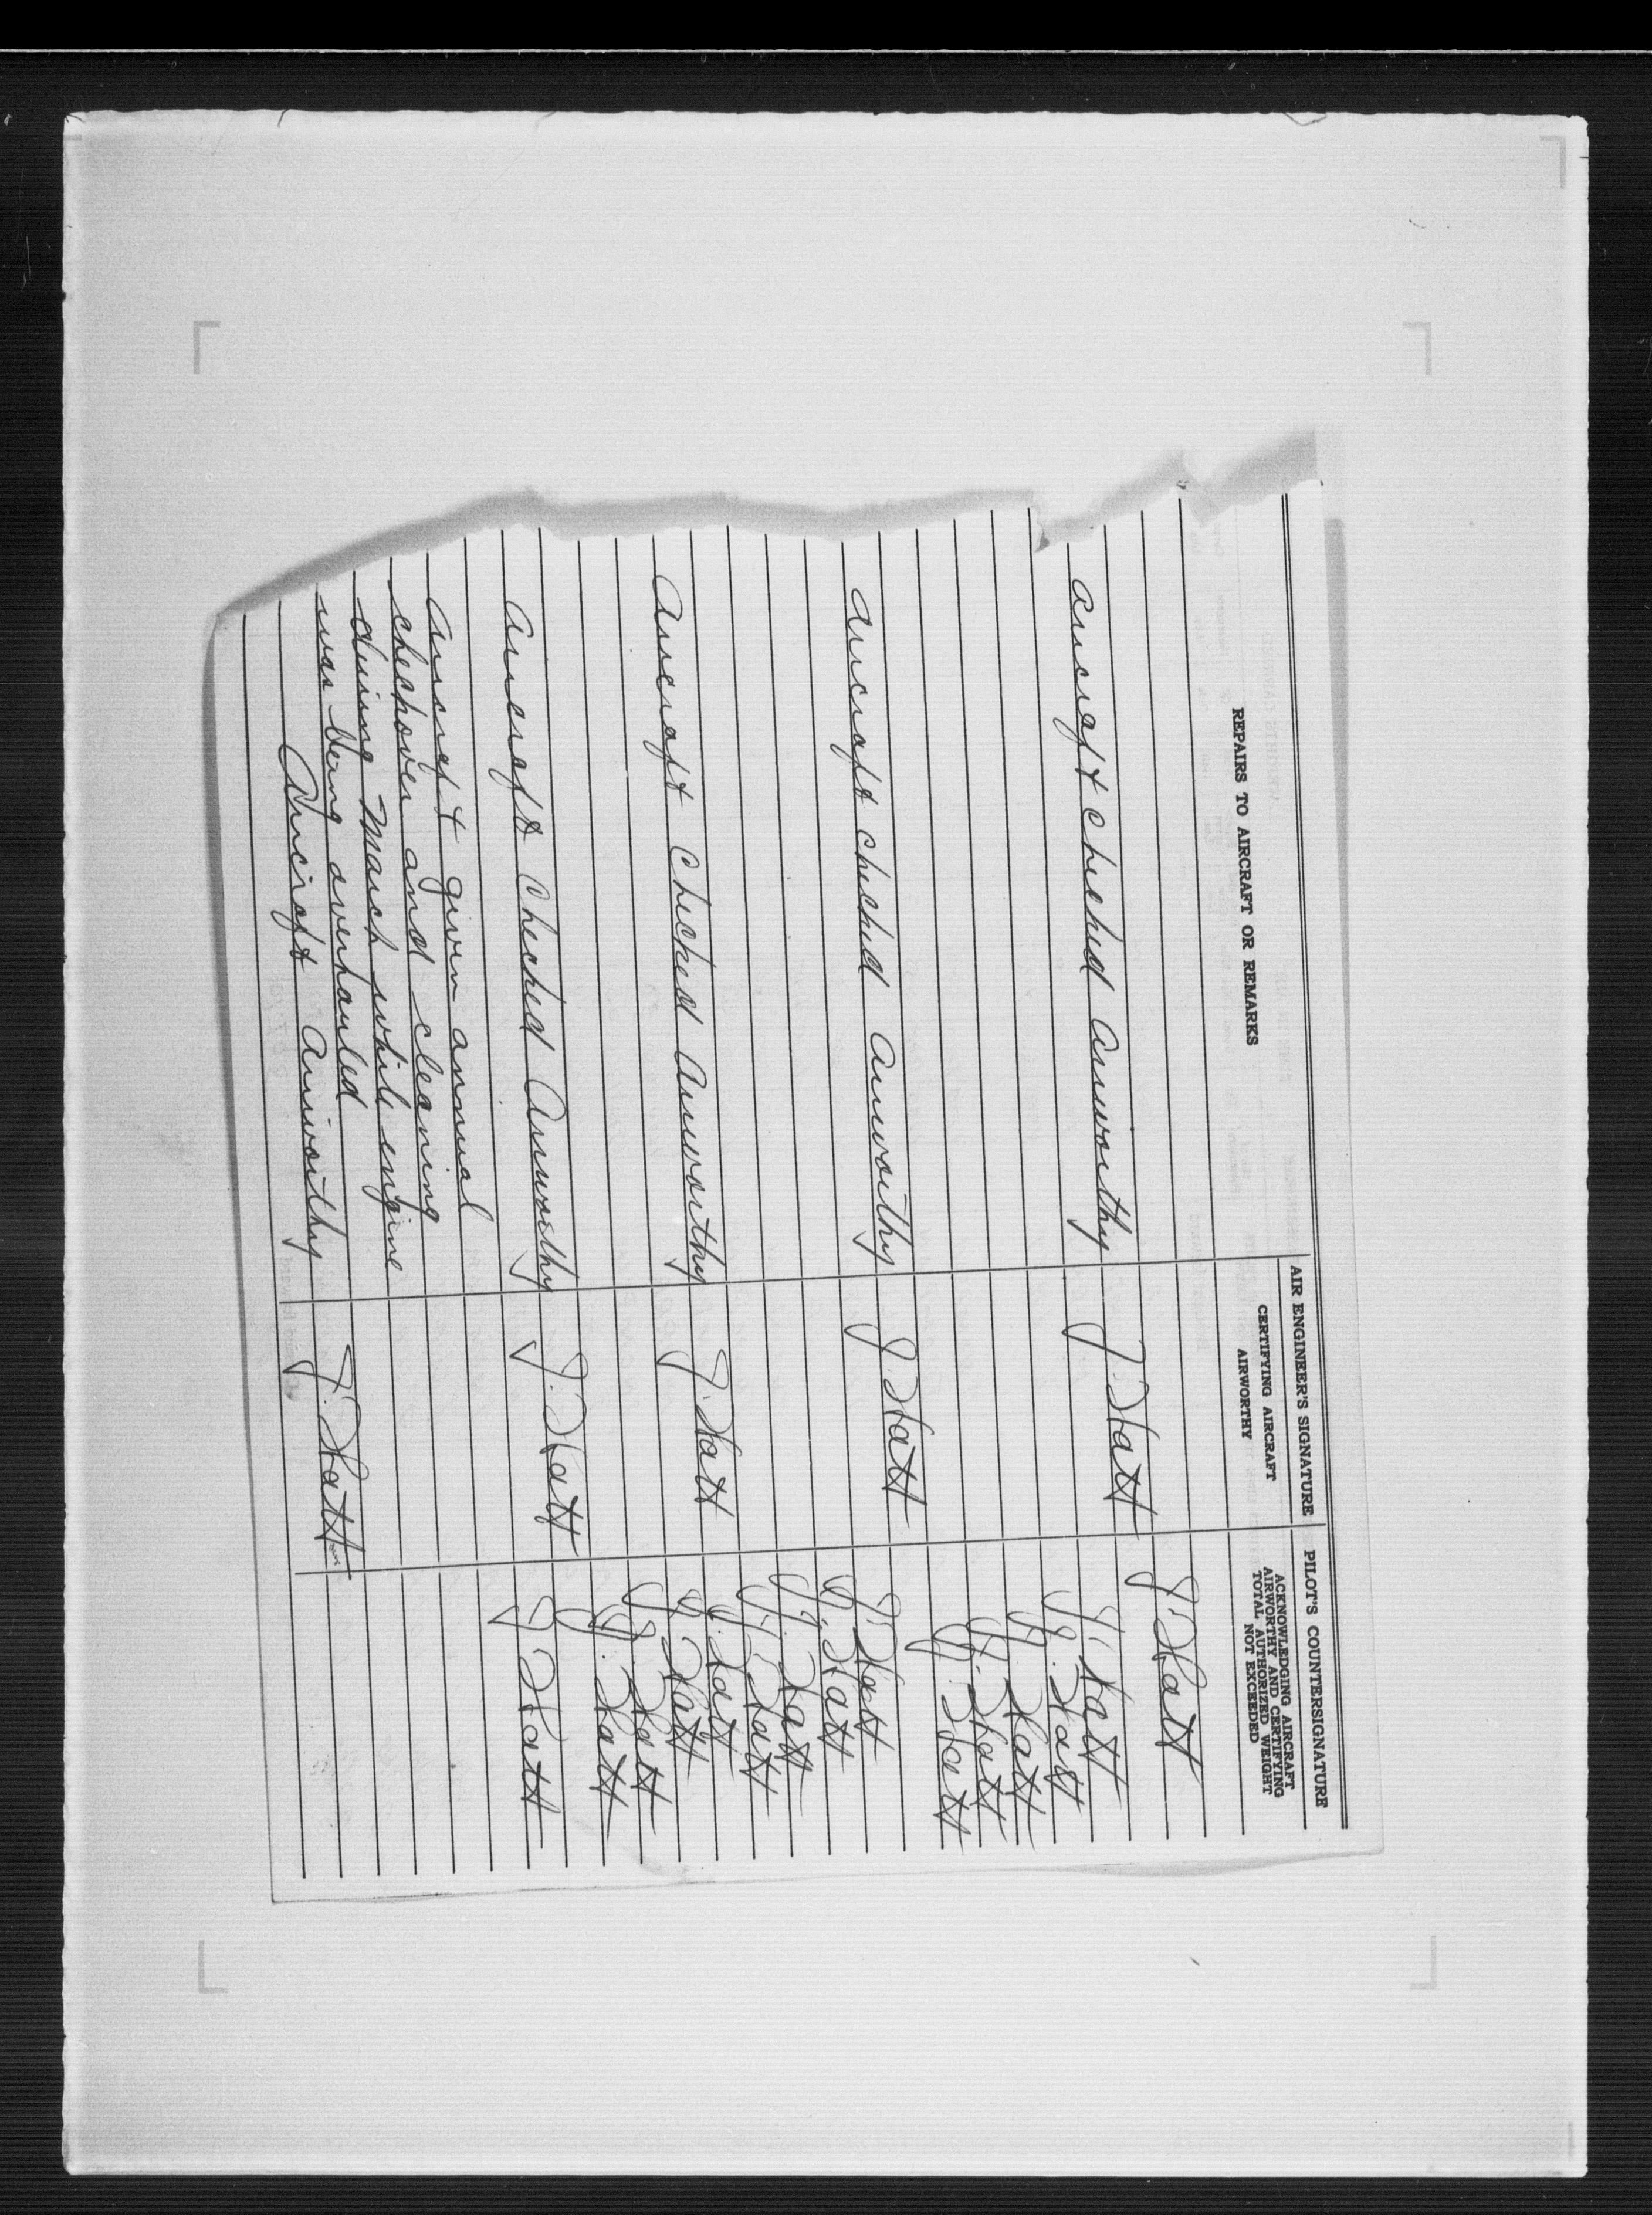 REPAIRS TO AIRCRAFT OR REMARKS
AIR ENGINEER'S SIGNATURE
CERTIFYING AIRCRAFT
AIRWORTHY
PILOT'S COUNTERSIGNATURE
ACKNOWLEDGING AIRCRAFT
AIRWORTHY AND CERTIFYING
TOTAL AUTHORIZED WEIGHT
NOT EXCEEDED
J Hatt
Aircraft checked Airworthy J. Hatt J. Hatt
J. Hatt
J. Hatt
J. Hatt
J. Hatt
Aircraft checked Airworthy J. Hatt J. Hatt
J. Hatt
J. Hatt
J. Hatt
J. Hatt
Aircraft checked Airworthy J. Hatt J. Hatt
J. Hatt
J. Hatt
Aircraft checked Airworthy J. Hatt J Hatt
Aircraft given annual
checkover and cleaning
during March while engine
was being overhauled
Aircraft Airworthy J. Hatt